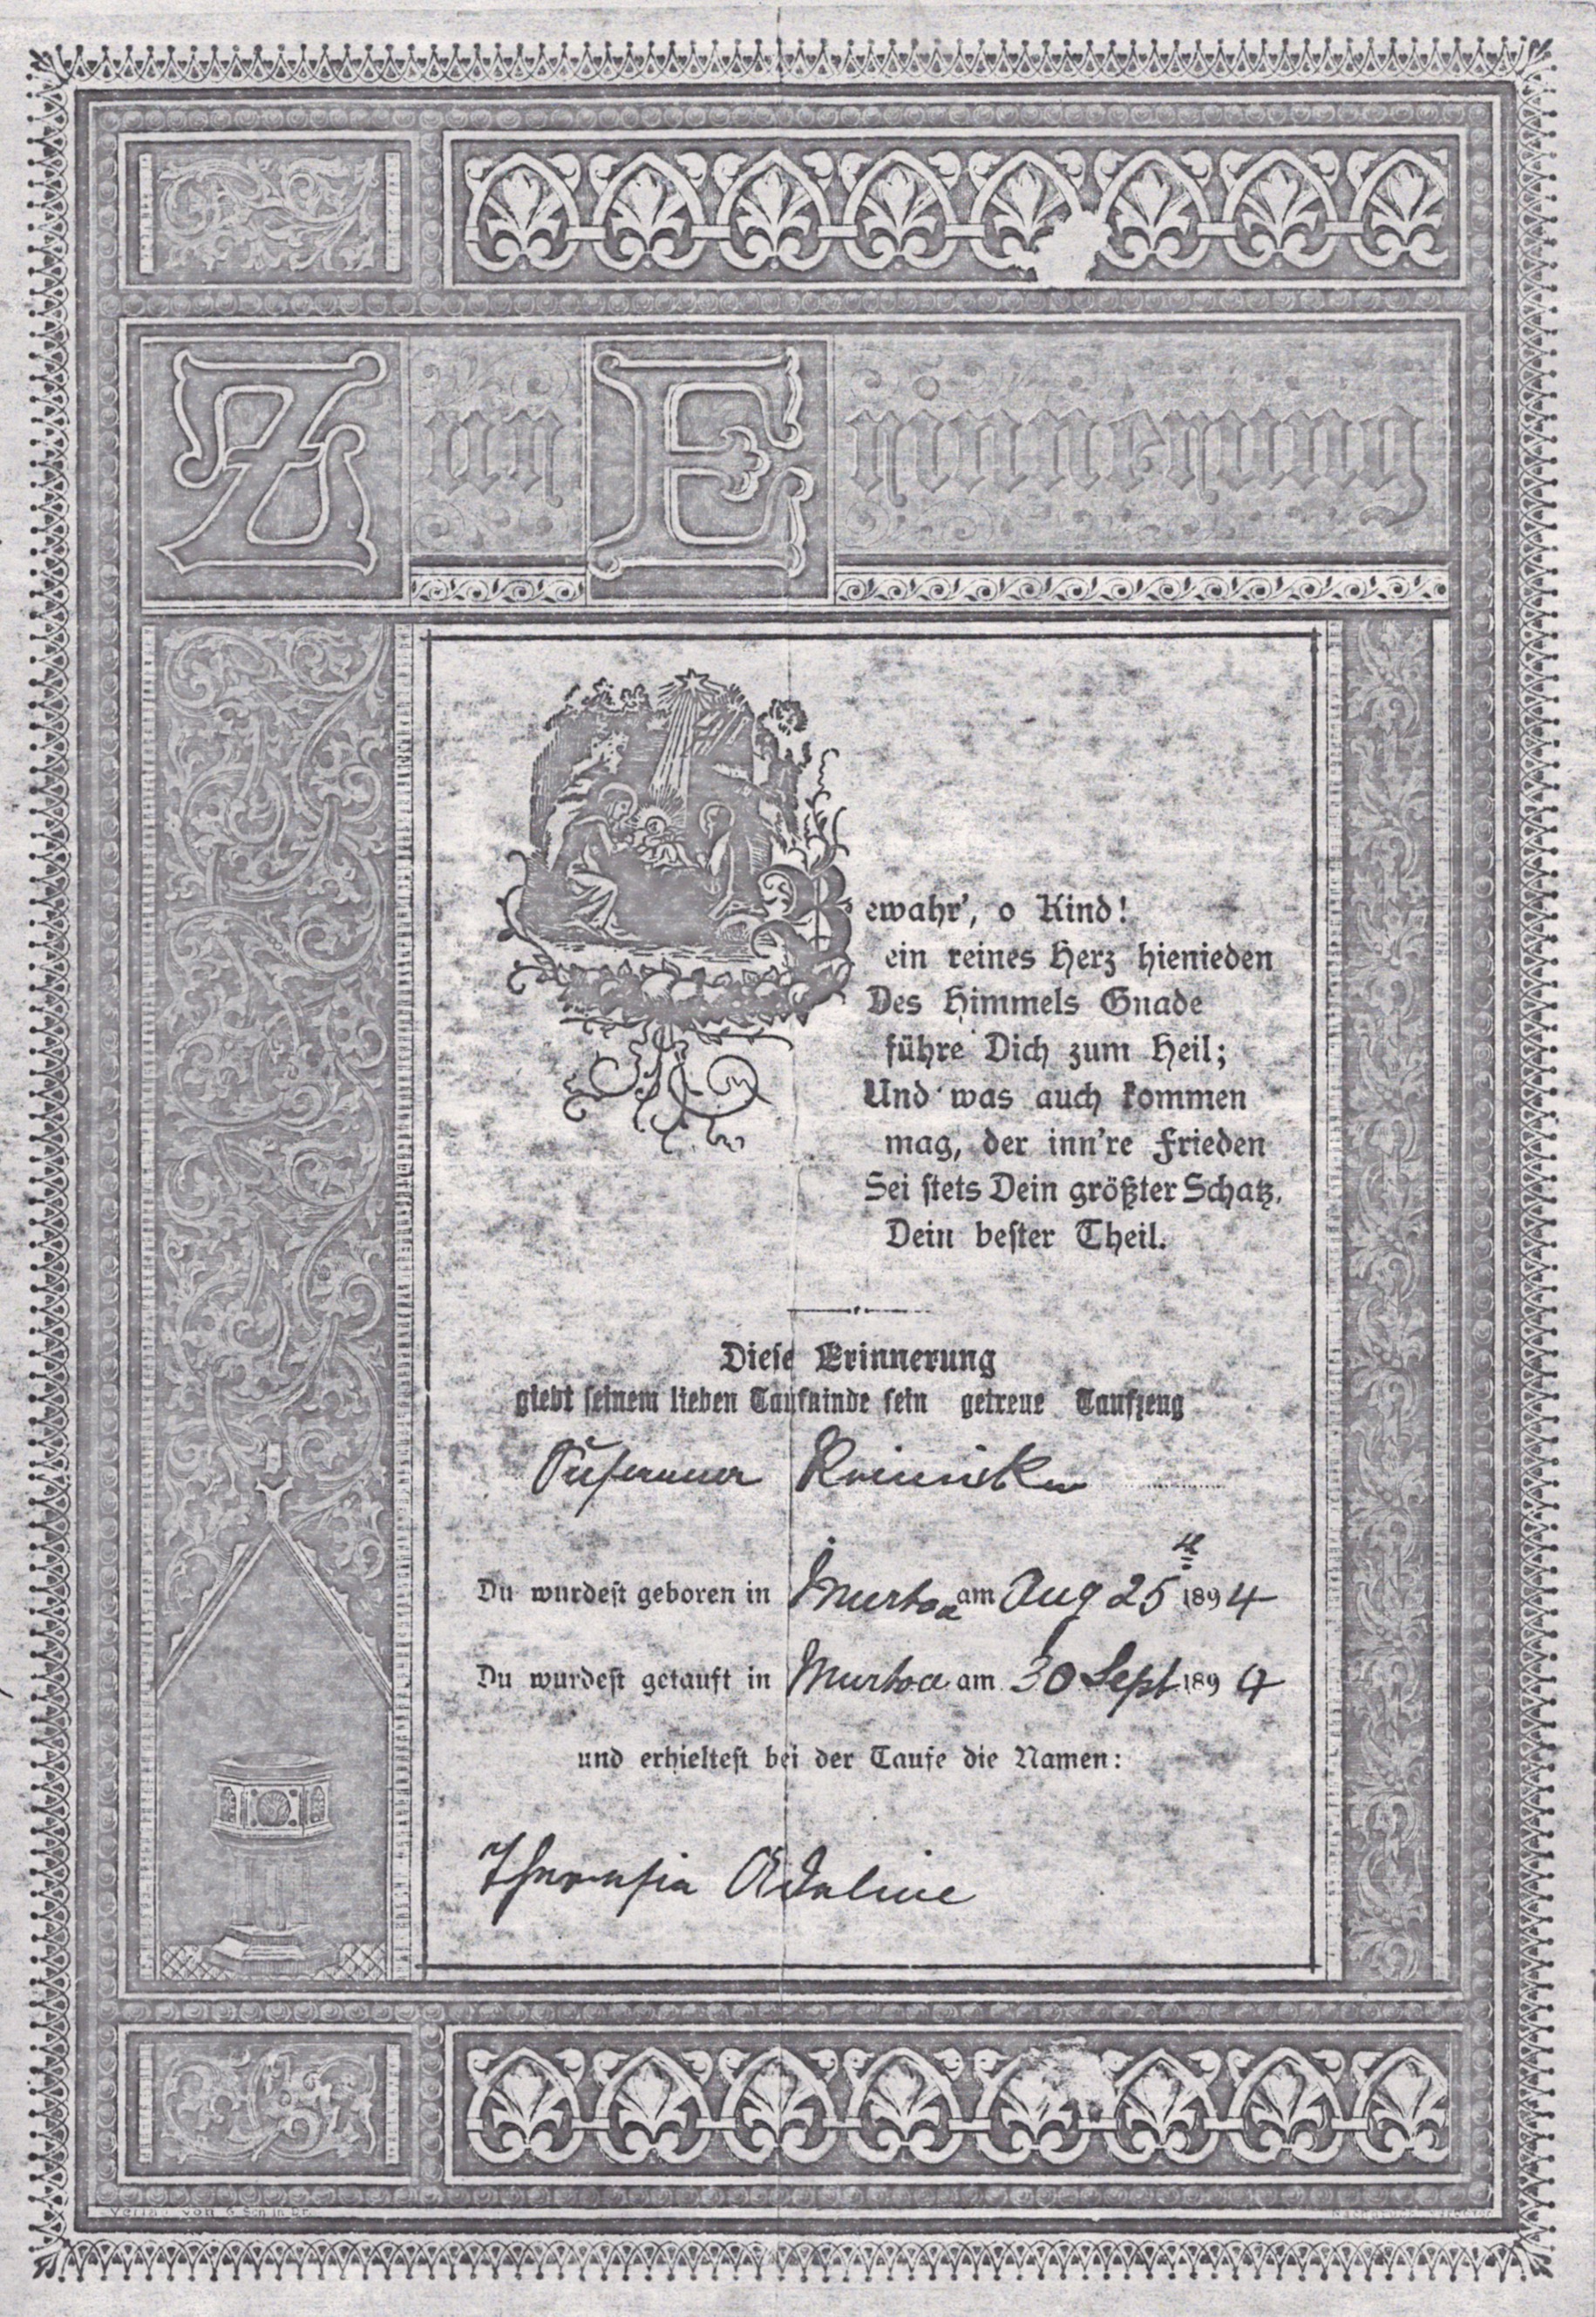 Zur Erinnerung
Bewahr', o Kind!
ein reines Herz hienieden
Des Himmels Gnade
führe Dich zum Heil;
Und was auch kommen
mag, der inn're Frieden
Sei stets Dein größter Schatz,
Dein bester Theil.
Diese Erinnerung
giebt seinem lieben Taufkinde sein getreue Taufzeug
Du wurdest geboren in Murtoa am Aug 25 1894
Du wurdest getauft in Murtoa am 30 Sept 1894
und erhieltest bei der Taufe die Namen:
Theresia Adeline
Verlag von